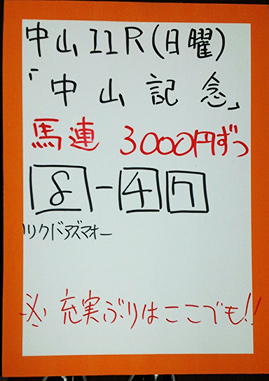 中山11R(日曜)
「中山記念」
馬連 3000円ずつ
8-47
リクドアズマオー
※充実ぶりはここでも!!